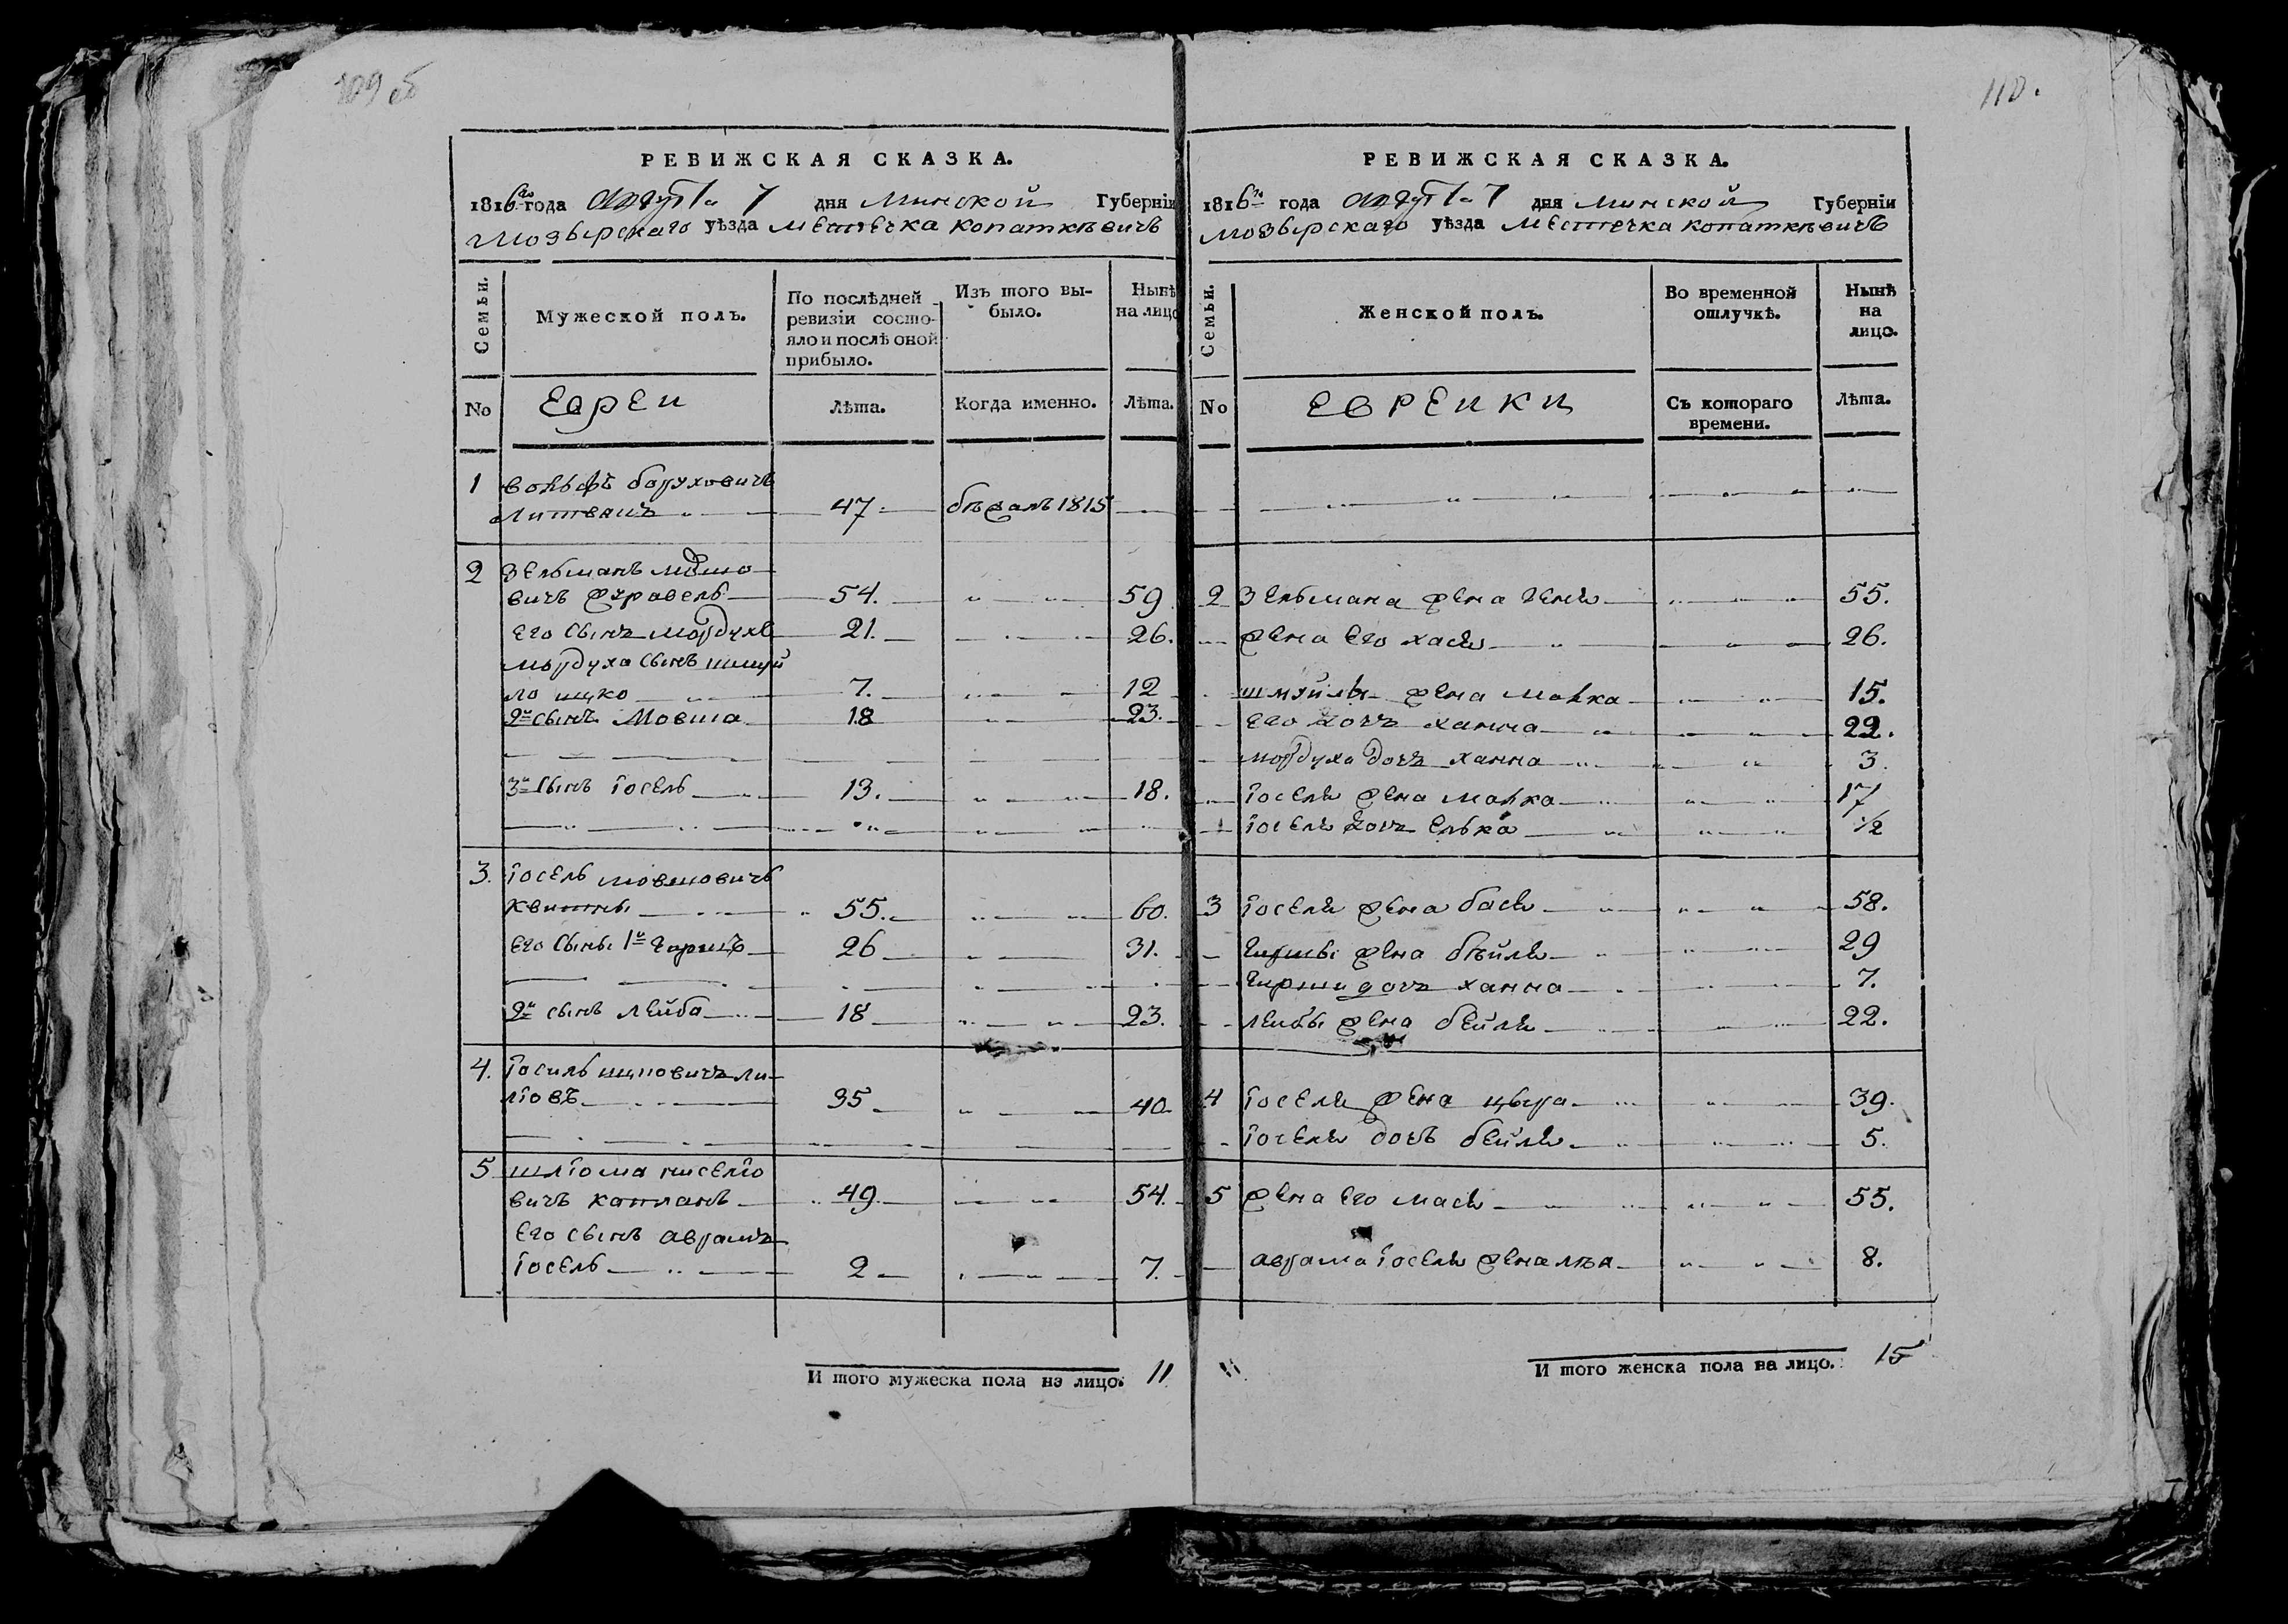 109 об
110.
РЕВИЖСКАЯ СКАЗКА.
1816го года августа 7 дня Минской Губерніи
Мозырскаго уѣзда местечка Копаткѣвичъ
Семьи.
Мужеской полъ.
По послѣдней ревизіи состояло и послѣ оной прибыло.
Изъ того выбыло.
Нынѣ на лицо
No
Евреи
Лѣта.
Когда именно.
Лѣта.
1 Вольфъ боруховичъ
Литвинъ 47. бѣжалъ 1815
2 Зельманъ
вичъ журавель 54. 59
его сынъ мордухъ 21. 26.
мордуха сынъ шмуй
ло ицко 7. 12
2й сынъ Мовша 18 23.
3й сынъ іосель 13. 18.
3. іосель мовшовичъ
Квитны 55. 60.
его сыны 1й гиршъ 26 31.
2й сынъ лейба 18 23.
4. іосиль ицковичъ ли-
ліовъ 35 40
5 шліома ниселіо
вичъ капланъ 49 54.
его сынъ аврамъ
іосель 2 7.
И того мужеска пола на лицо. 11
РЕВИЖСКАЯ СКАЗКА.
1816го года августа 7 дня Минской Губерніи
Мозырскаго уѣзда местечка Копаткѣвичъ
Семьи.
Женской полъ.
Во временной отлучкѣ.
Нынѣ на лицо.
No
Еврейки
Съ котораго времени.
Лѣта.
2 Зельмана жена геня 55.
жена его хася 26.
шмуйлы жена малка 15.
его дочъ ханна 22.
мордуха дочъ ханна 3.
іоселя жена малка 17
іоселя дочъ елька 1/2
3 іоселя жена бася 58.
гирши жена бѣйля 29
гирши дочъ ханна 7.
лейбы жена бейля 22.
4 іоселя жена цыра 39.
іоселя дочъ бейля 5.
5 жена его мася 55.
аврама іоселя жена лѣя 8.
И того женска пола на лицо. 15